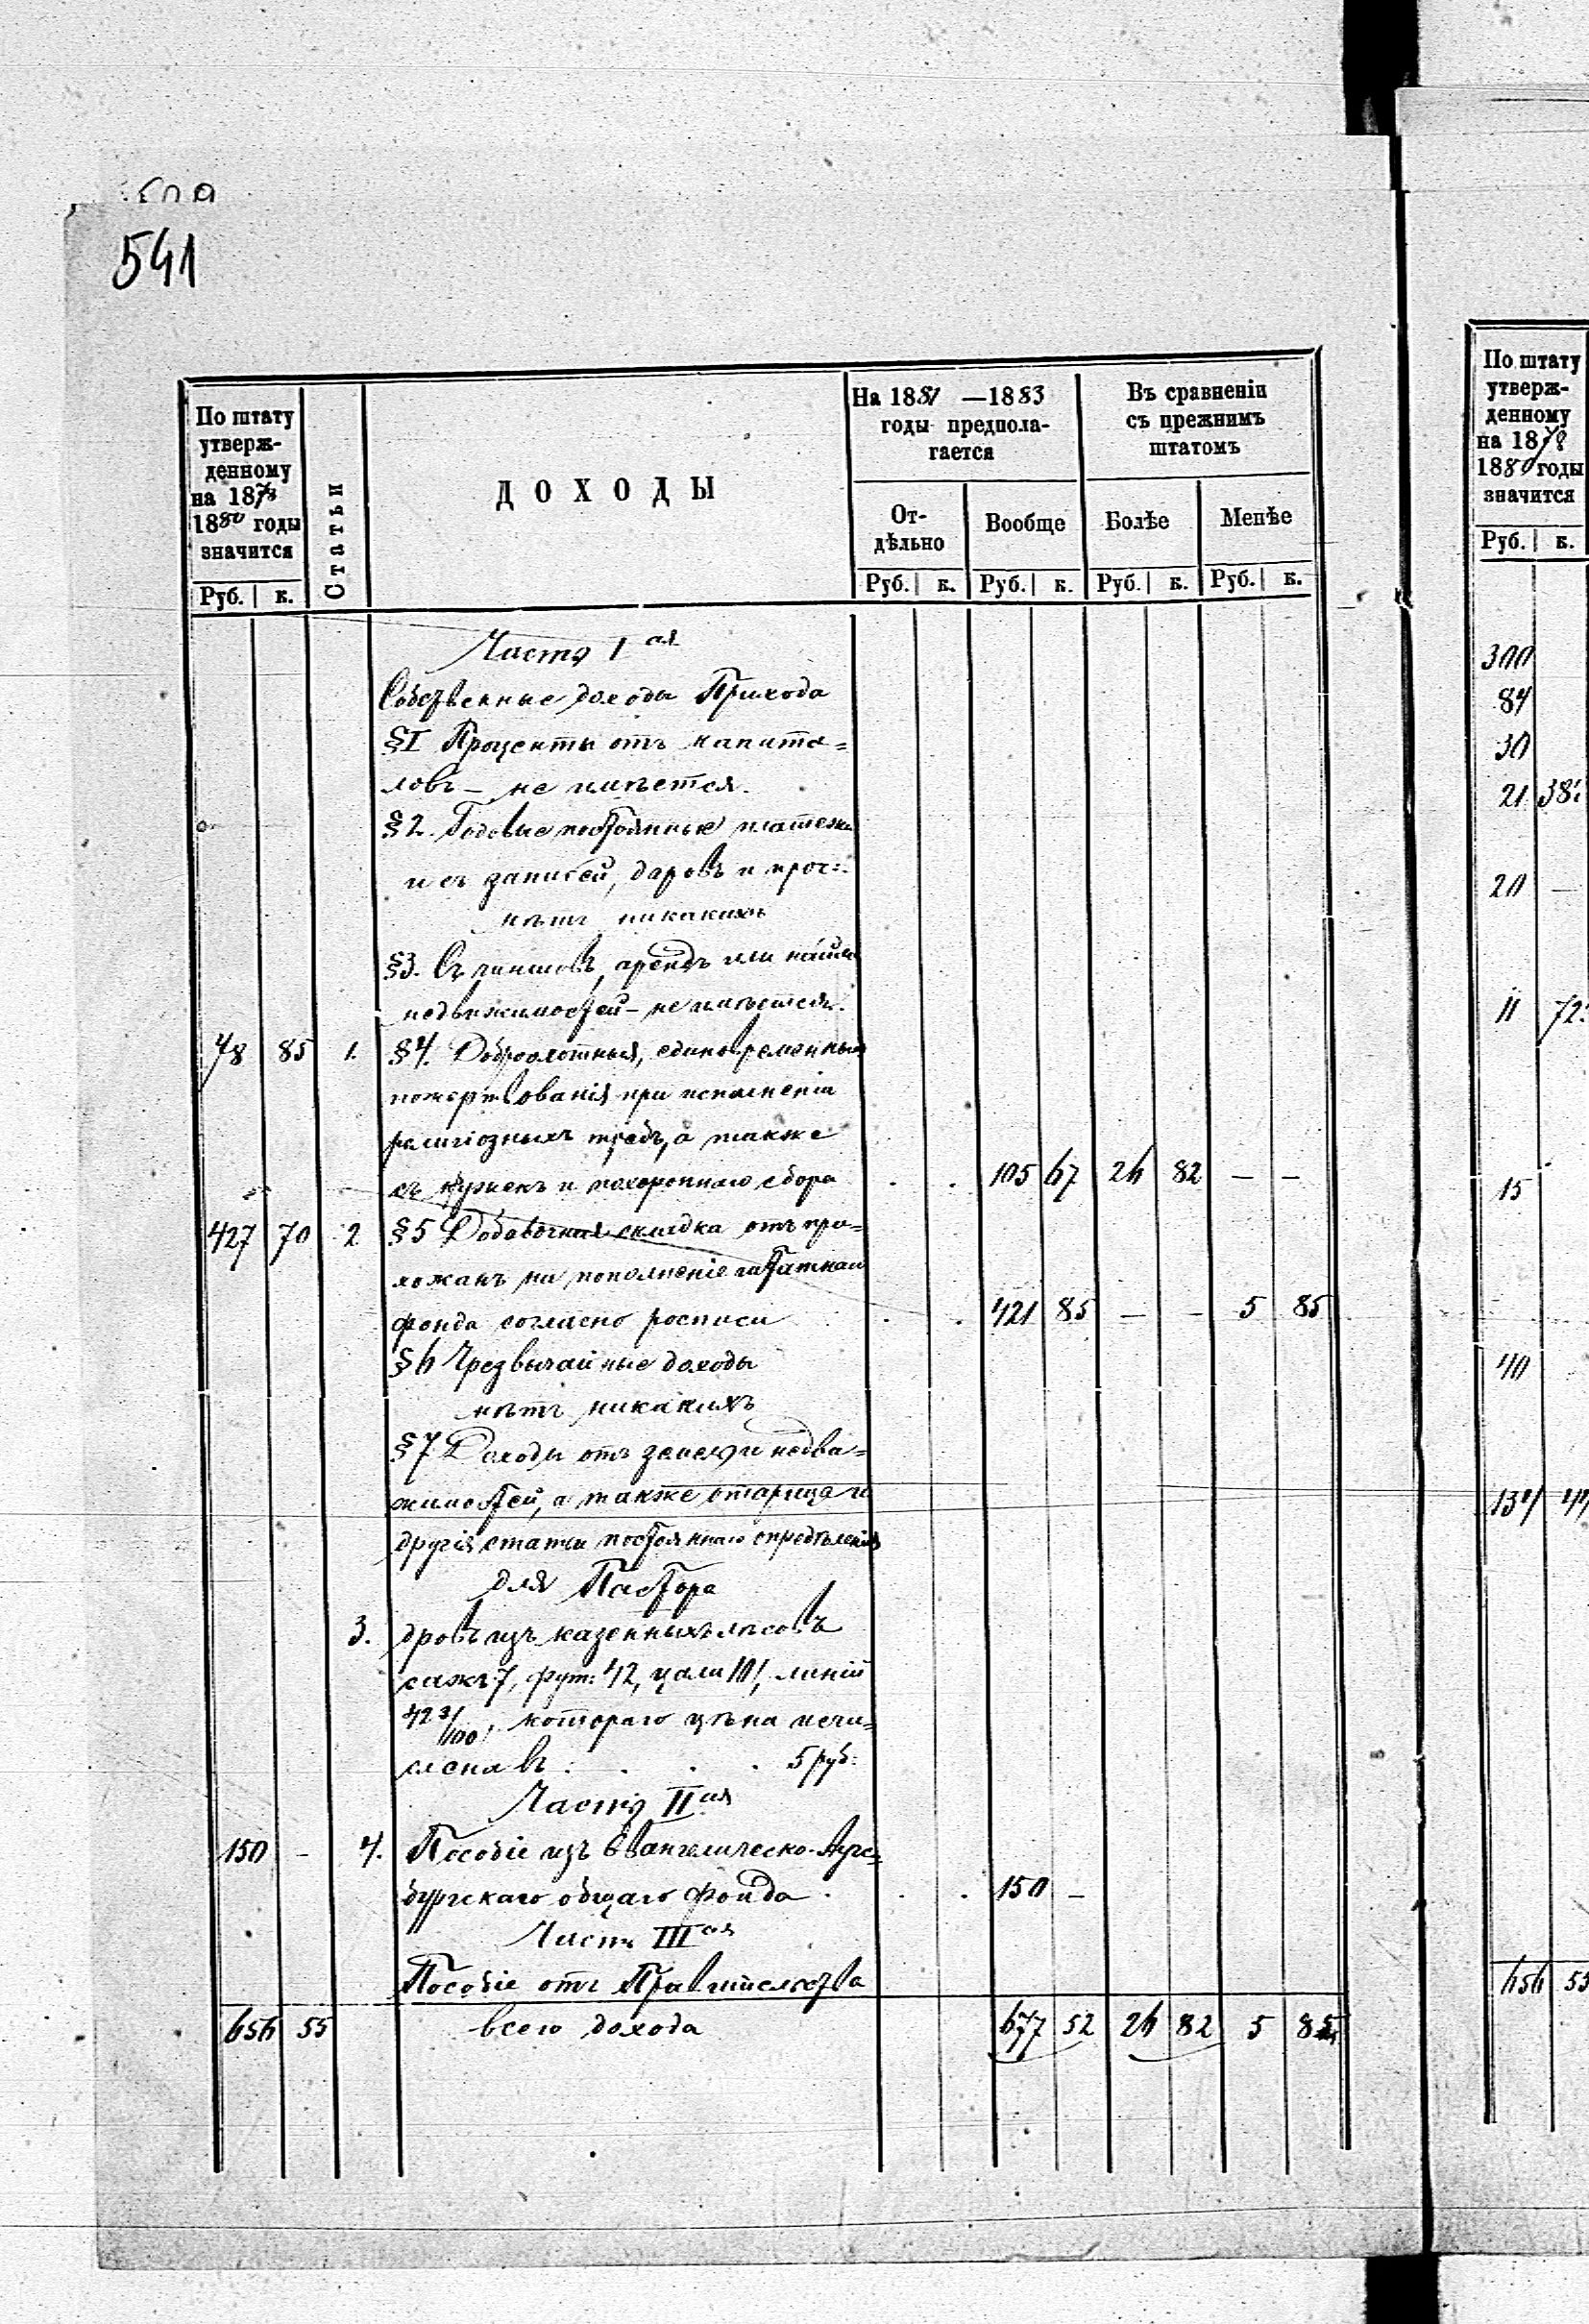 509
541
По штату
утверж-
денному
на 1878
1880 годы
значится
Руб. к.
Статьи
ДОХОДЫ
На 1881 —1883
годы предпола-
гается
От-
дѣльно
Руб. к.
Вообще
Руб. к.
Въ сравненіи
съ прежнимъ
штатомъ
Болѣе
Руб. к.
Менѣе
Руб. к.
Часть I ая
Собственные доходы Прихода
§ I Проценты отъ капита=
ловъ — не имѣется.
§ 2. Годовые постоянные платежи
и съ записей, даровъ и проч:.
нѣтъ никакихъ
§ 3. Съ чиншовъ, арендъ или найма
недвижимостей — не имѣется.
78 85 1. § 4. Доброхотныя, единовременныя
пожертвованія при исполненіи
религіозныхъ требъ, а также
съ кружекъ и похороннаго сбора . . 105 67 26 82 — —
427 70 2 § 5 Добавочная складка отъ при=
хожанъ на пополненіе штатнаго
фонда согласно росписи . . 421 85 — — 5 85
§ 6 Чрезвычайные доходы
нѣтъ никакихъ
§ 7 Доходы отъ земель и недви=
жимостей, а также и
другія статьи постояннаго опредѣленія
для Пастора
3. дровъ изъ казенныхъ лѣсовъ
саж: 7, фут: 42, цали 101, линій
42 3/100, котораго цѣна исчи=
слена въ : . . . 5 руб:
Часть II ая
150 - 4. Пособіе изъ Евангелическо-Аугс=
бургскаго общаго фонда . . . 150 —
Часть III ая
Пособіе отъ Правительства
656 55 всего дохода 677 52 26 82 5 85
По штату
утверж-
денному
на 1878
1880 годы
значится
Руб. к.
300
84
30
21 38
20 —
11 72
15
40
134
656 55